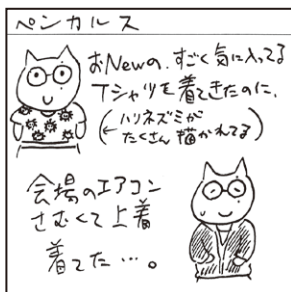 ペンカルス
おNewの、すごく気に入ってる
Tシャツを着てきたのに、
(←ハリネズミが
たくさん描かれてる)
会場のエアコン
さむくて上着
着てた…。